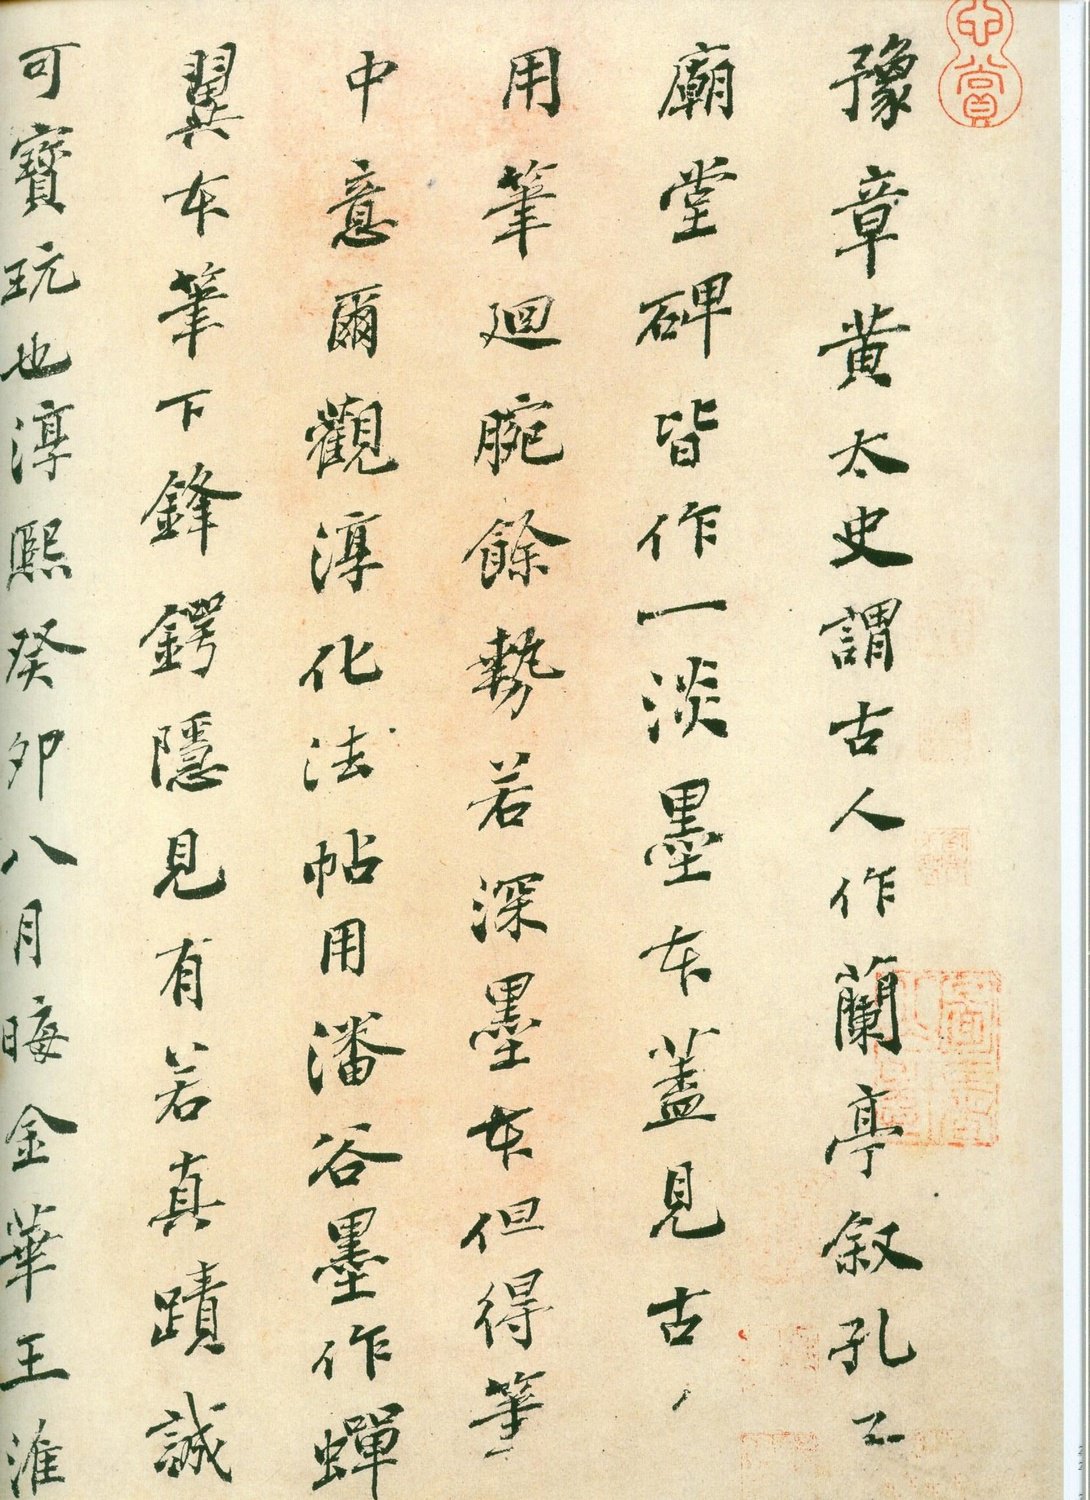 心賞
豫章黃太史謂古人作蘭亭叙孔子
廟堂碑皆作一淡墨本蓋見古
用筆迴腕餘勢若深墨本但得筆
中意爾觀淳化法帖用潘谷墨作蟬
翼本筆下鋒鍔隱見有若真蹟誠
可寶玩也淳熙癸卯八月晦金華王淮